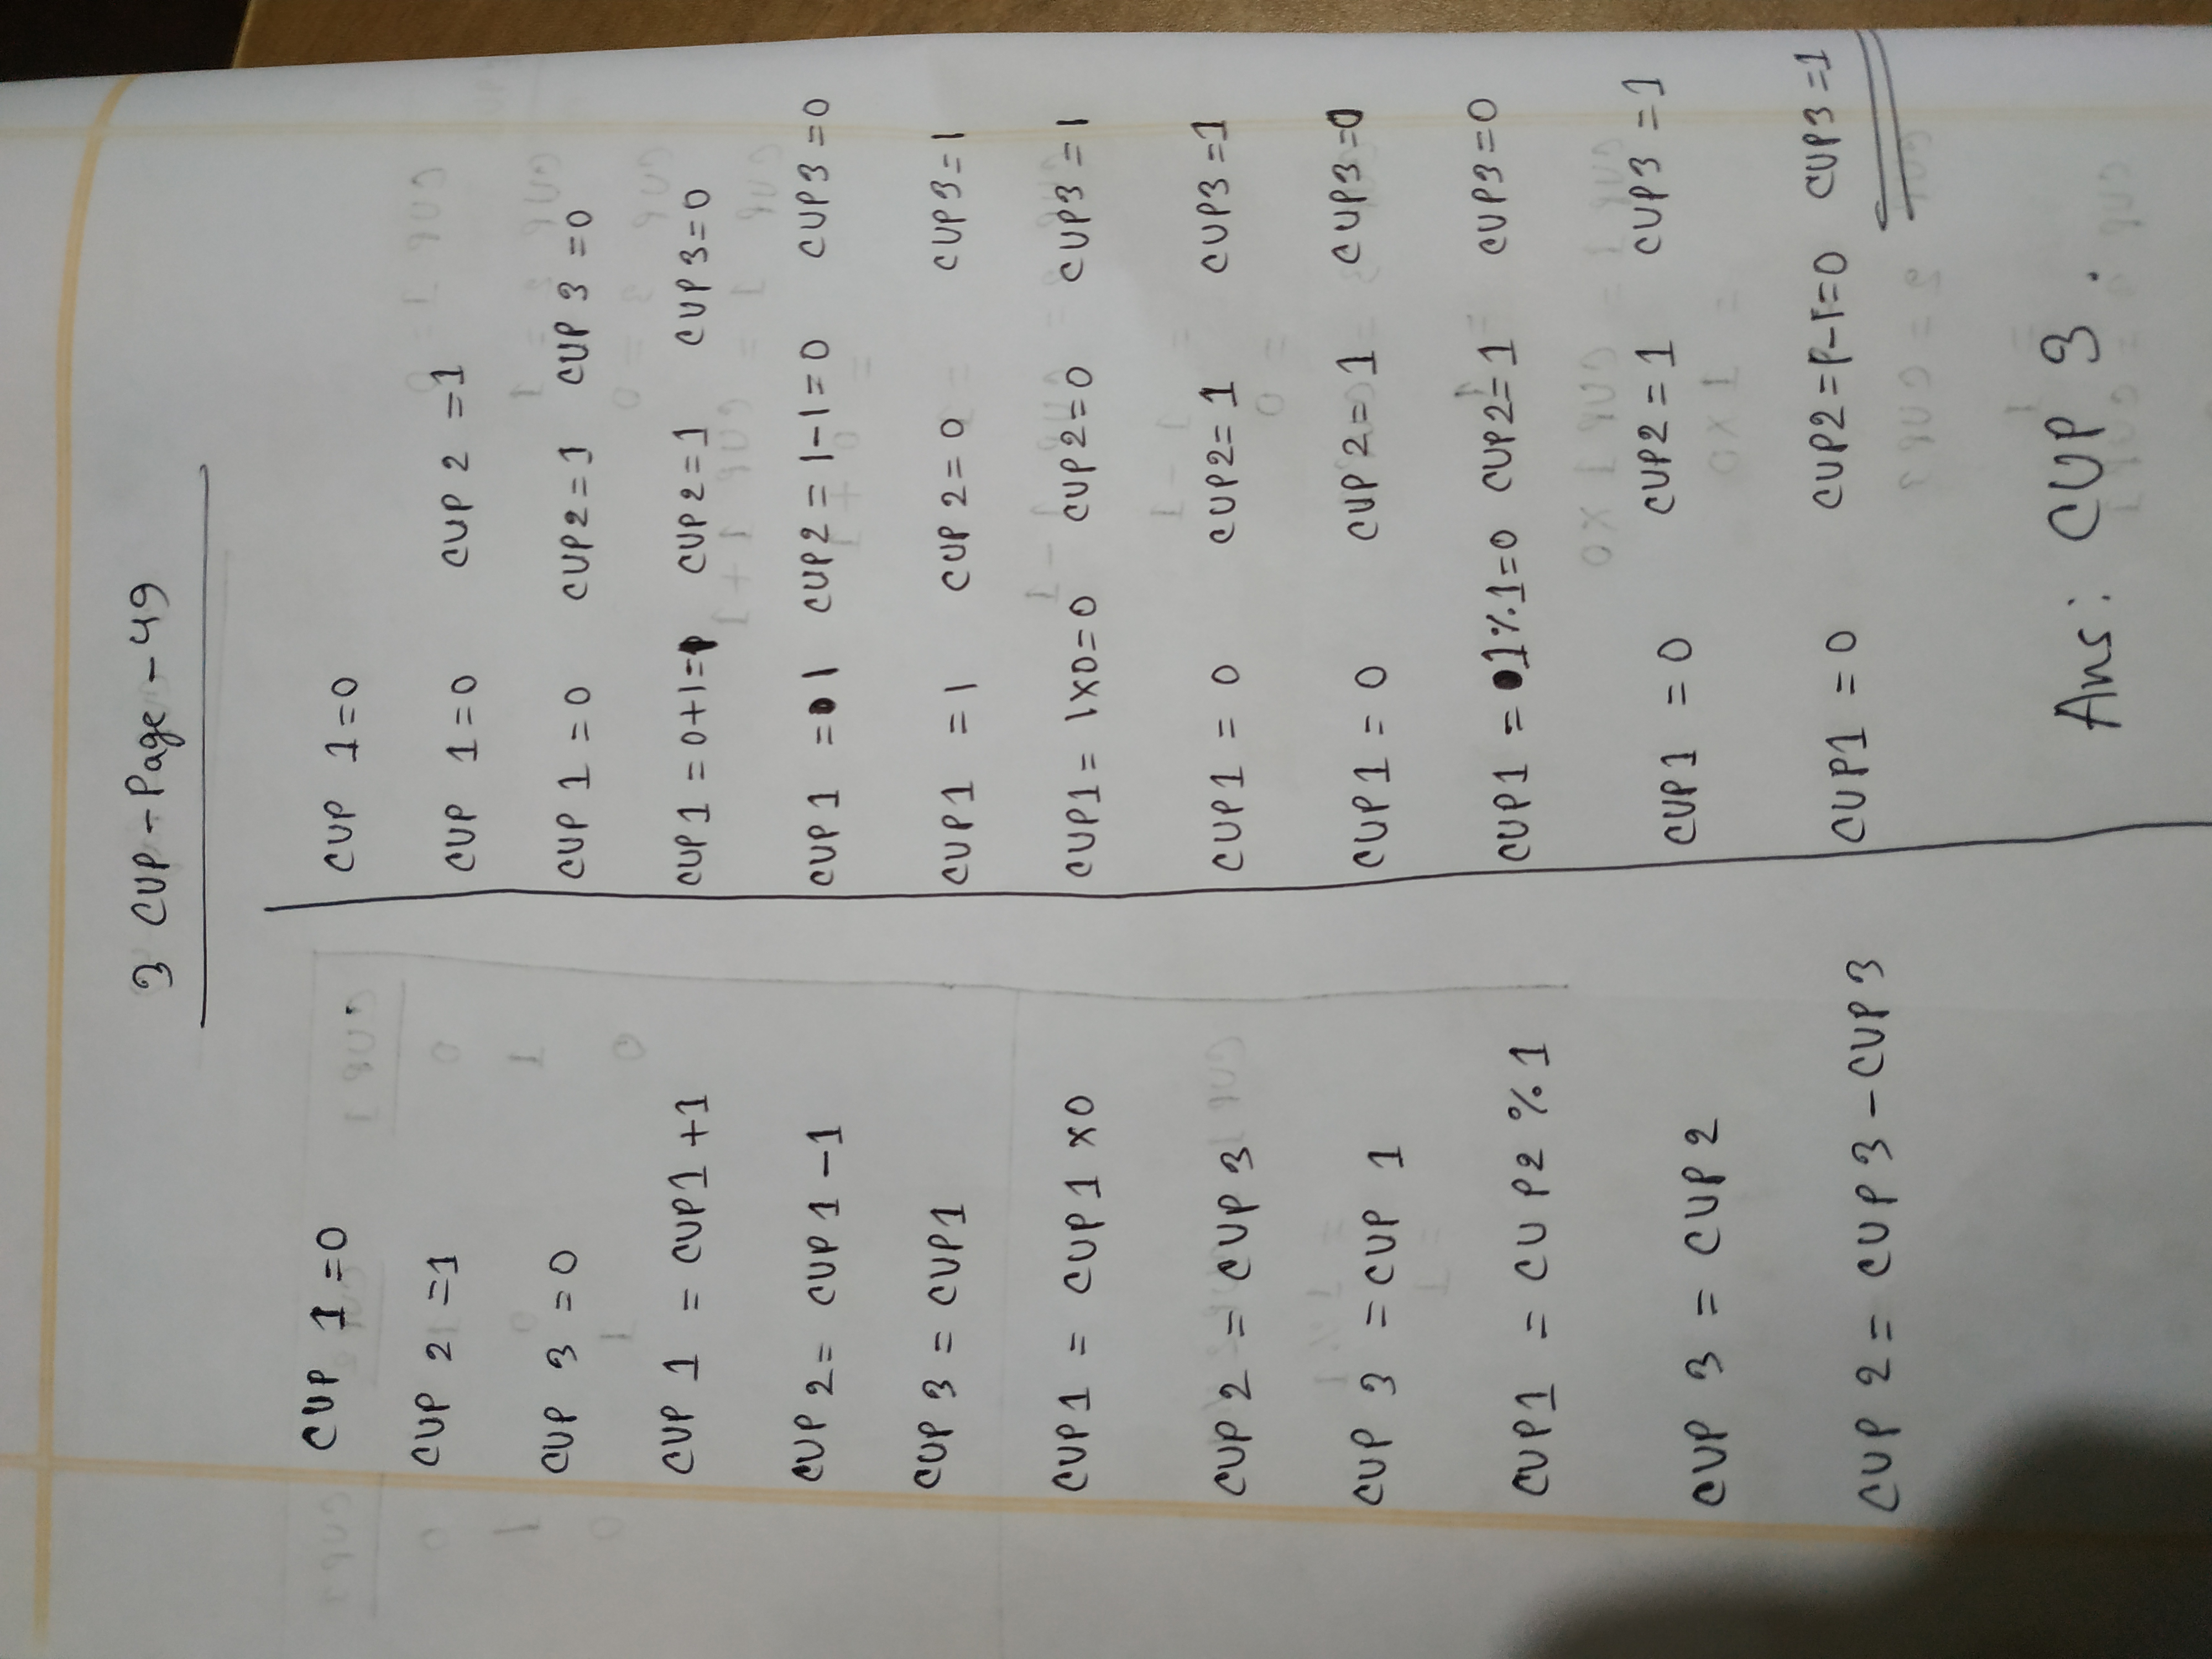 3 CUP - Page - 49
CUP 1 = 0
CUP 2 = 1
CUP 3 = 0
CUP 1 = CUP1 + 1
CUP 2 = CUP 1 - 1
CUP 3 = CUP1
CUP1 = CUP 1 × 0
CUP 2 = CUP 3
CUP 3 = CUP 1
CUP1 = CUP2 % 1
CUP 3 = CUP 2
CUP 2 = CUP 3 - CUP 3
CUP 1 = 0
CUP 1 = 0 CUP 2 = 1
CUP 1 = 0 CUP2 = 1 CUP 3 = 0
CUP 1 = 0+1=1 CUP2 = 1 CUP3 = 0
CUP 1 = 1 CUP2 = 1-1=0 CUP3 = 0
CUP1 = 1 CUP 2 = 0 CUP3 = 1
CUP1 = 1×0=0 CUP2 = 0 CUP3 = 1
CUP1 = 0 CUP2 = 1 CUP3 = 1
CUP1 = 0 CUP 2 = 1 CUP3 = 0
CUP1 = 1%1=0 CUP2 = 1 CUP3 = 0
CUP1 = 0 CUP2 = 1 CUP3 = 1
CUP1 = 0 CUP2 = 1-1=0 CUP3 = 1
Ans: CUP 3.